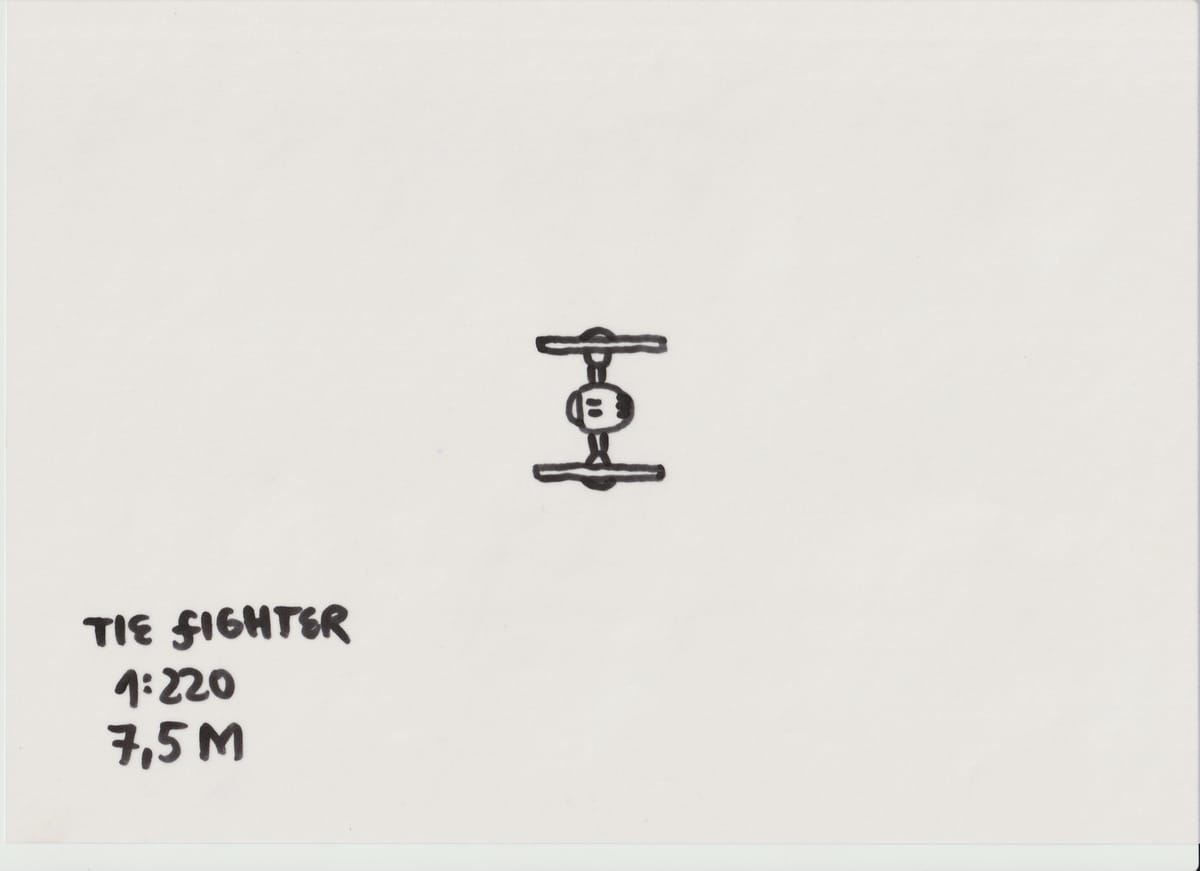 TIE FIGHTER
1:220
7,5 M